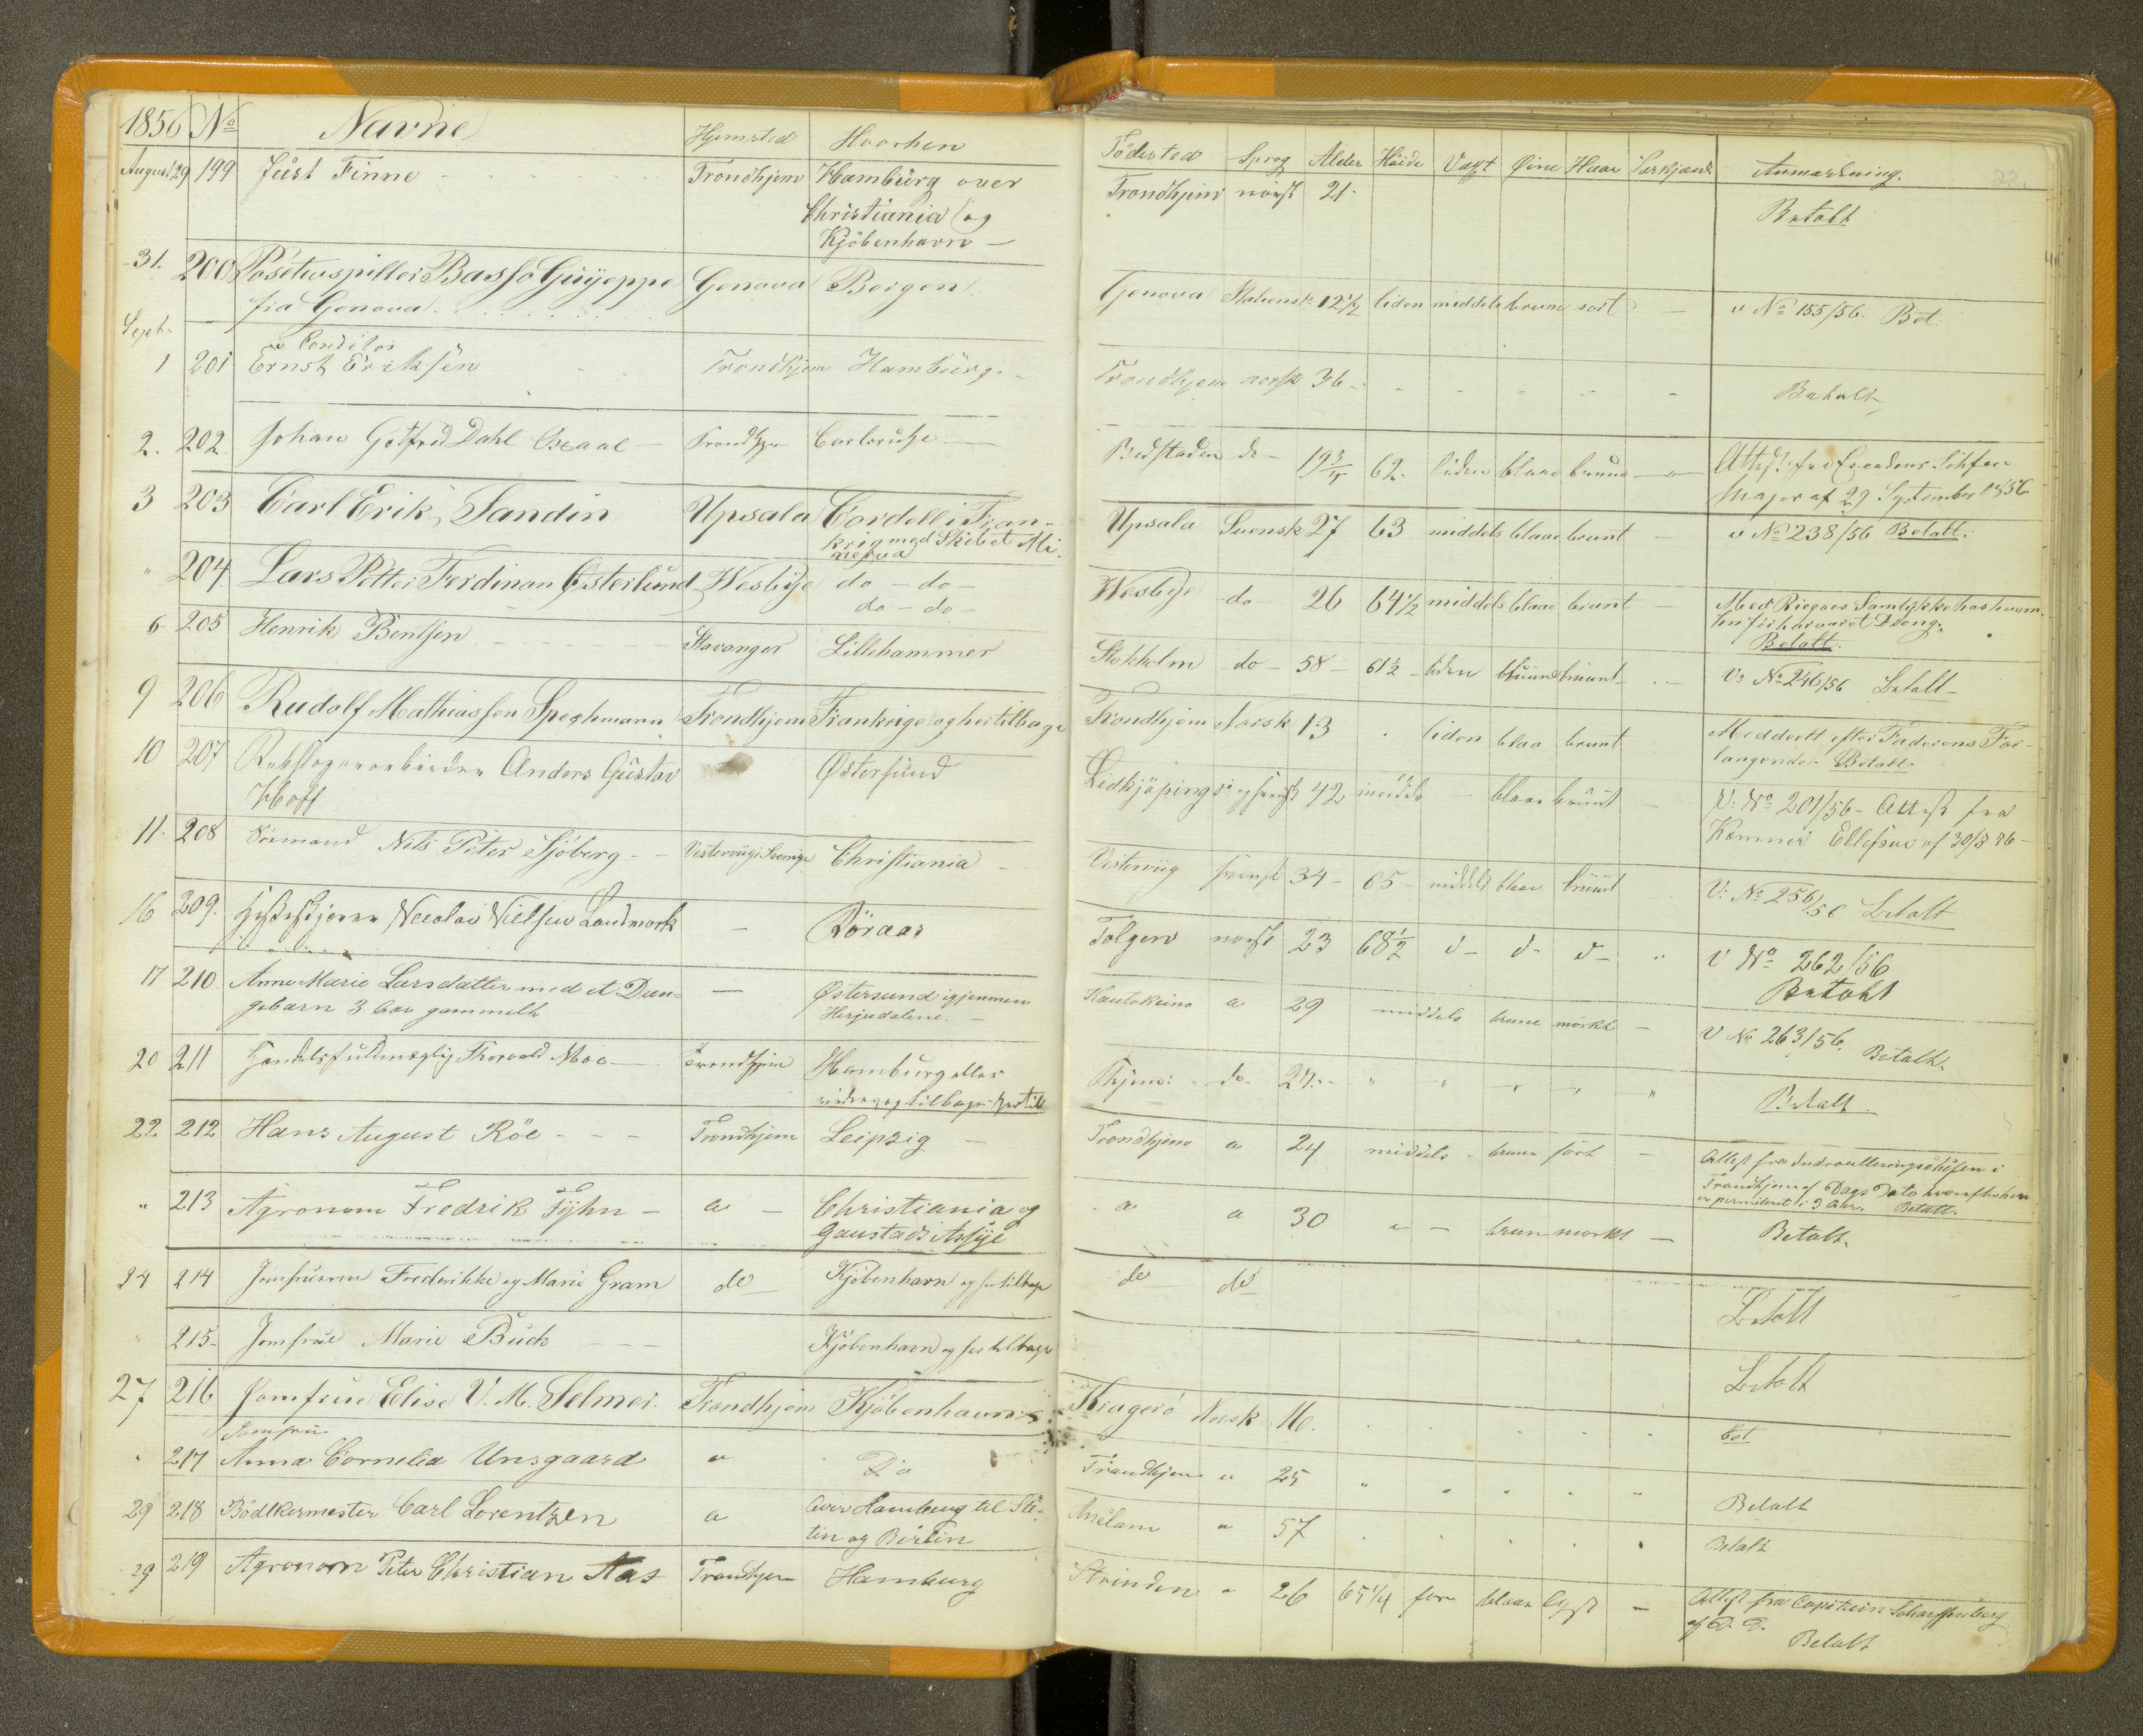 1856 No Navne Hjemsted Hvorhen
August 29 199 Just Finne Trondhjem Hamburg over
Christiania og
Kjöbenhavn —
31. 200 Positivspiller Basso Guijeppe Genova Bergen
fra Genova
Sept.
Conditor
1 201 Ernst Eriksen Trondhjem Hamburg. -
2. 202. Johan Gotfred Dahl Trondhjem Carlsruhe —
3 203 Carl Erik Sandin Upsala Cordell i Fran-
krig med Skibet Mi-
nerva
" 204 Lars Petter Ferdinan Østerlund Wesbye do - do -
do - do -
6 205 Henrik Bentsen Stavanger Lillehammer
9 206 Rudolf Mathiassen Speghmann Trondhjem Frankrige og her tilbage
10 207 Anders Gustav Østersund
Hoff
11. 208 Nils Peter Sjöberg - - Vestervüg i Sverige Christiania -
16 209. Necolai Nielsen Landmark — Röraas
17 210 Anne Marie Larsdatter med et Dren- — Østersund igjennem
gebarn 3 Aar gammelt Herjedalene. —
20 211 Handelsfuldmægtig Thorvald Moe — Trondhjem Hamburg eller
videre og tilbage hertil
22 212 Hans August Röe - - - Trondhjem Leipzig —
" 213 Agronom Fredrik Fyhn - a — Christiania og
Gaustads Asyl
24 214 Jomfruerne Frederikke og Marie Gram do Kjöbenhavn og her tilbage
" 215- Jomfrue Marie Buck Kjöbenhavn og her tilbage
27 216 Jomfrue Elise V. M. Selmer. Trondhjem Kjöbenhavn
Jomfru
217 Anna Cornelia Unsgaard " Do
29 218 Bödkermester Carl Lorentzen a over Hamburg til Ste-
tin og Berlin
29 219 Agronom Peter Christian Aas Trondhjem Hamburg
Födested Sprog Alder Höide Vaxt Øine Haar Særkjænde Anmærkning.
Trondhjem norsk 21. Betalt
Genova Italiensk 12 1/2 liden middels brune sort — v No 155/56. Bet.
Trondhjem norsk 36 - Betalt
do - 19 3/4 62. liden blaae brune — Attest fra
Major af 29 September 1856
Upsala Svensk 27 63 middels blaae brunt — v No 238/56 Betalt.
Wesbye do 26 64 1/2 middels blaae brunt — Med
Betalt.
Stokholm do - 58 - 61 1/2 - liden bruunt - V: No 246/56 Betalt -
Trondhjem Norsk 13 liden blaa brunt Meddeelt efter Faderens For-
langende. Betalt.
Lidkjöping 42 middels - blaae brunt — V: No 201/56 - Attest fra
Kæmner Ellefsen af 30/8 46 -
Vestervüg svensk 34 - 65 - middels blaae bruunt V: No 256/56 Betalt
Tolgen norsk 23 68 1/2 d - d - d - " V No 262/56
Betalt
Kautokeino a 29 middels brune mörkt — V No 263/56. Betalt.
Thjem: do. 24. - " " " " " Betalt
Trondhjem a 24 middels - brune sort — Attest fra Indroulleringschefen i
Trondhjem af Dags Dato hvorefter han
er permitteret i 3 Aar. Betalt.
a a 30 " — brun mörkt — Betalt.
do do Betalt
Betalt
Kragerö Norsk 16. bet
Trondhjem " 25 " " " " " Betalt
" 57 Betalt
Strinden " 26 65 1/4 før blaae lyst — Attest fra Capitain Scharffenberg
af D. D.
Betalt